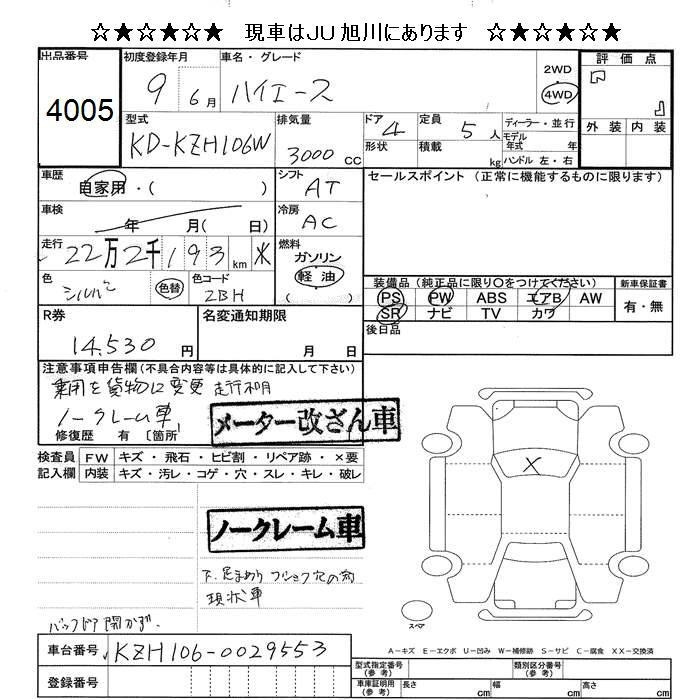 ☆★☆★☆★ 現車はJU旭川にあります ☆★☆★☆★
出品番号 初度登録年月 車名・グレード 評価点
4005 9 6月 ハイエース 2WD
4WD
型式 排気量 ドア 定員 ディーラー・並行 外装 内装
KD-KZH106W 3000CC 4 5人 モデル
年式 年
形状 積載 kg ハンドル 左・右
車歴 自家用・( ) シフト AT セールスポイント (正常に機能するものに限ります)
車検 年 月( 日) 冷房 AC
走行 22万2千193km 燃料 ガソリン
軽油
色 シルバー 色替 色コード 2BH ( )
装備品 (純正品に限り〇をつけてください) 新車保証書
PS PW ABS エアB AW 有・無
SR ナビ TV カワ
R券 名変通知期限 後日品
14,530円 月 日
注意事項申告欄(不具合内容等は具体的に記入して下さい)
乗用を貨物に変更 走行不明
ノークレーム車
メーター改ざん車
修復歴 有 〔箇所
検査員 FW キズ・飛石・ヒビ割・リペア跡・×要
記入欄 内装 キズ・汚レ・コゲ・穴・スレ・キレ・破レ
X
ノークレーム車
現状車
バックドア開かず.
スペア
A-キズ E-エクボ U-凹み W-補修跡 S-サビ C-腐食 XX-交換済
車台番号 KZH106-0029553
型式指定番号
(参考) 類別区分番号
(参考)
登録番号 車庫証明用
(参考) 長さ cm 幅 cm 高さ cm